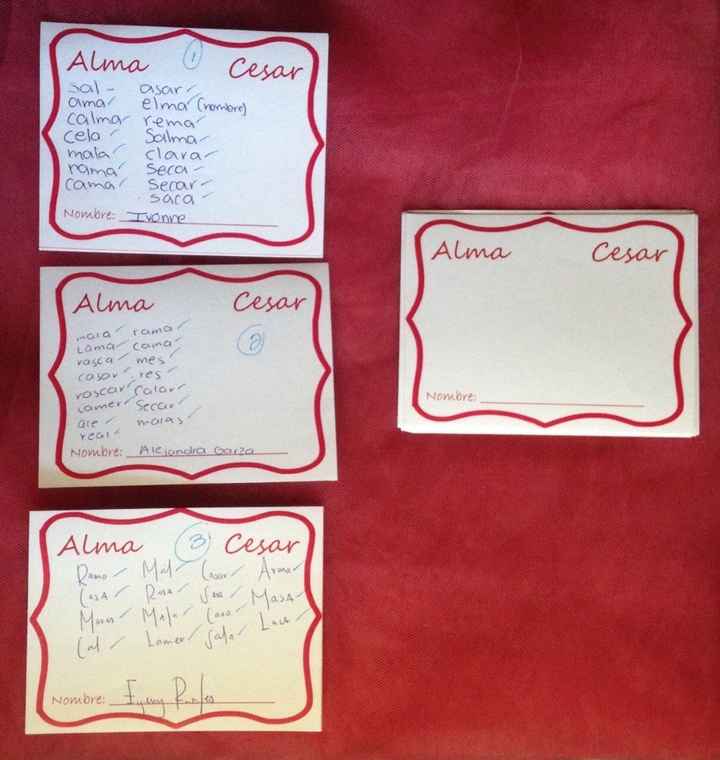 Alma 1 Cesar
sal asar
ama elma (nombre)
calma rema
cela Salma
mala clara
rama Seca
cama Secar
saca
Nombre: Ivonne
Alma Cesar
2
mara rama
Lama cama
rasca mes
casar res
rascar Calar
Lamer Secar
ale malas
real
Nombre: Alejandra Garza
Alma 3 Cesar
Ramo Mal Casar Arma
Casa Rosa Masa
Mala Cara
Cal Lamer Sala Laca
Nombre:
Alma Cesar
Nombre: